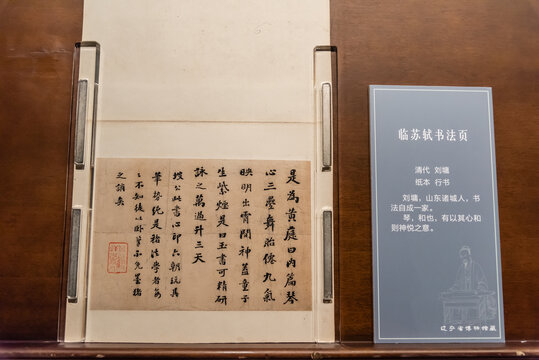 是为黄庭曰内篇琴
心三叠舞胎僊九氣
映明出霄間神蓋童子
生紫煙是曰玉書可精研
詠之萬過升三天
坡公此書心即六朝玩其
筆勢純是褚法學者每
之誚矣
临苏轼书法页
清代 刘墉
纸本 行书
刘墉，山东诸城人，书
法自成一家。
琴，和也，有以其心和
则神悦之意。
辽宁省博物馆藏